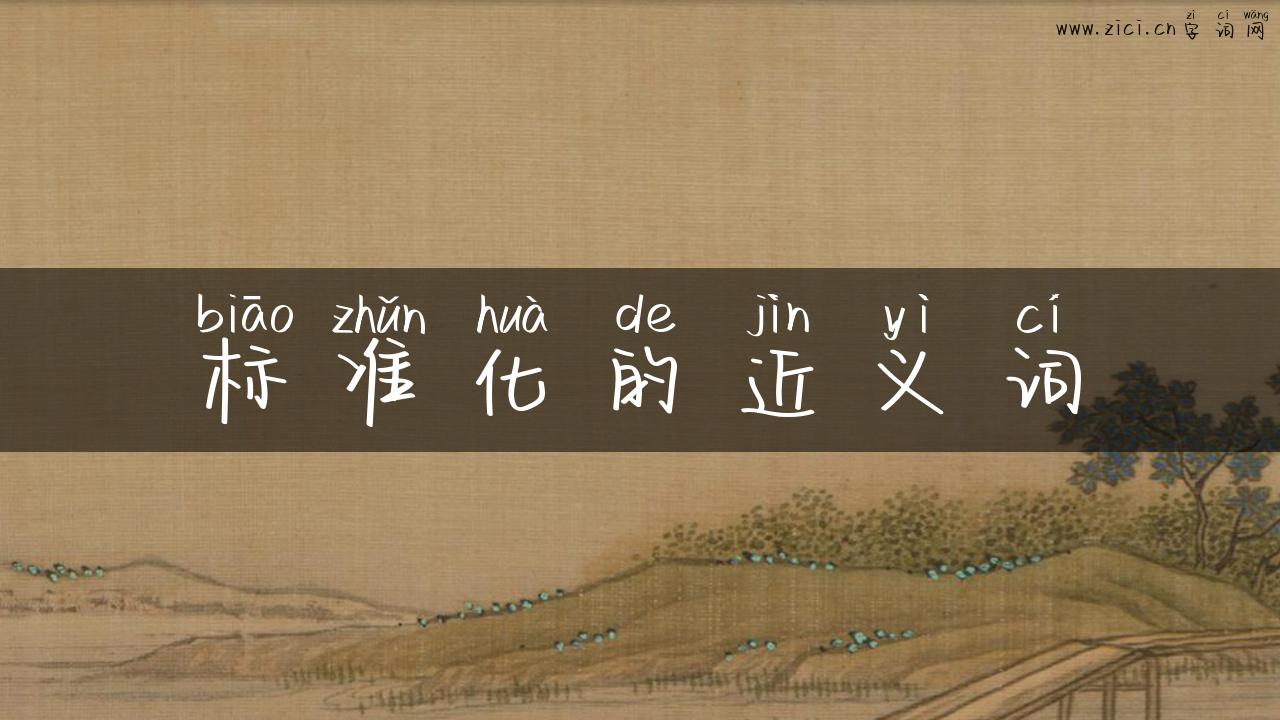 zì cí wǎng
www.zici.cn 字词网
biāo zhǔn huà de jìn yì cí
标准化的近义词